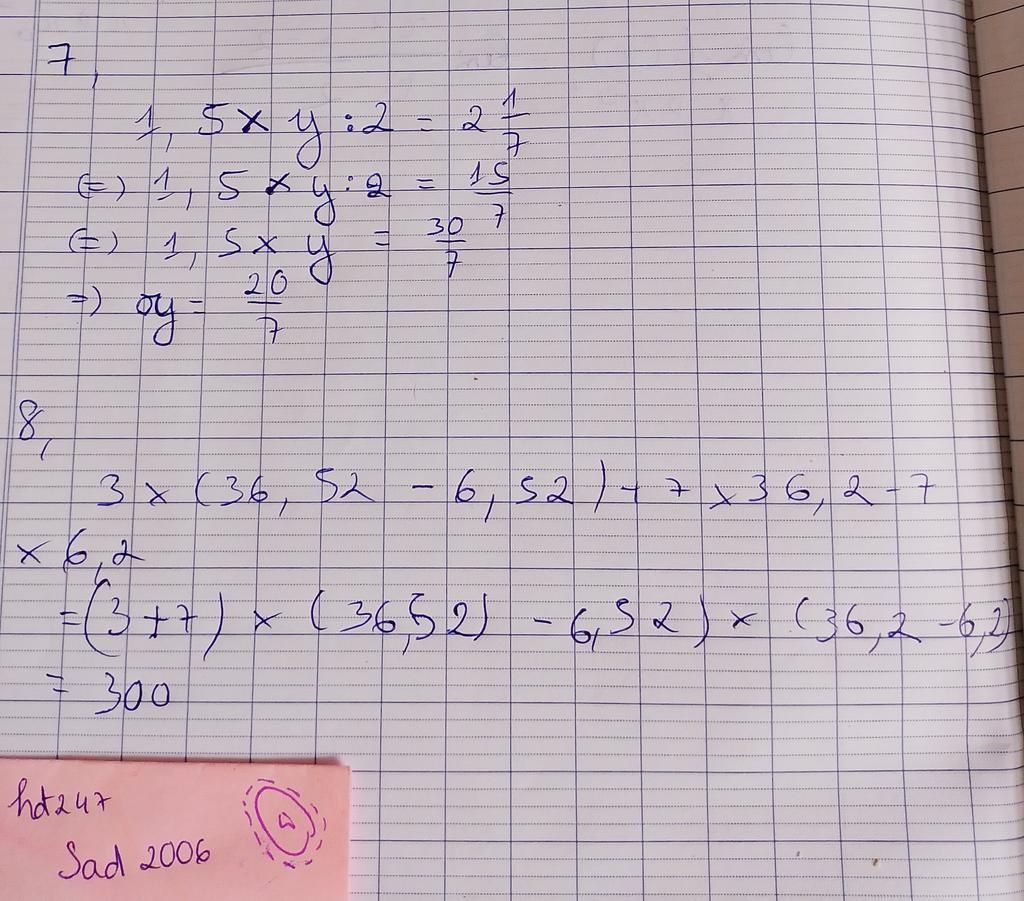 7,
1,5 x y : 2 = 2 1/7
(=) 1,5 x y : 2 = 15/7
(=) 1,5 x y = 30/7
=) y = 20/7
8,
3 x (36,52 - 6,52) + 7 x 36,2 - 7
x 6,2
= (3 + 7) x (36,52) - 6,52) x (36,2 - 6,2)
= 300
hdt247
Sad 2006